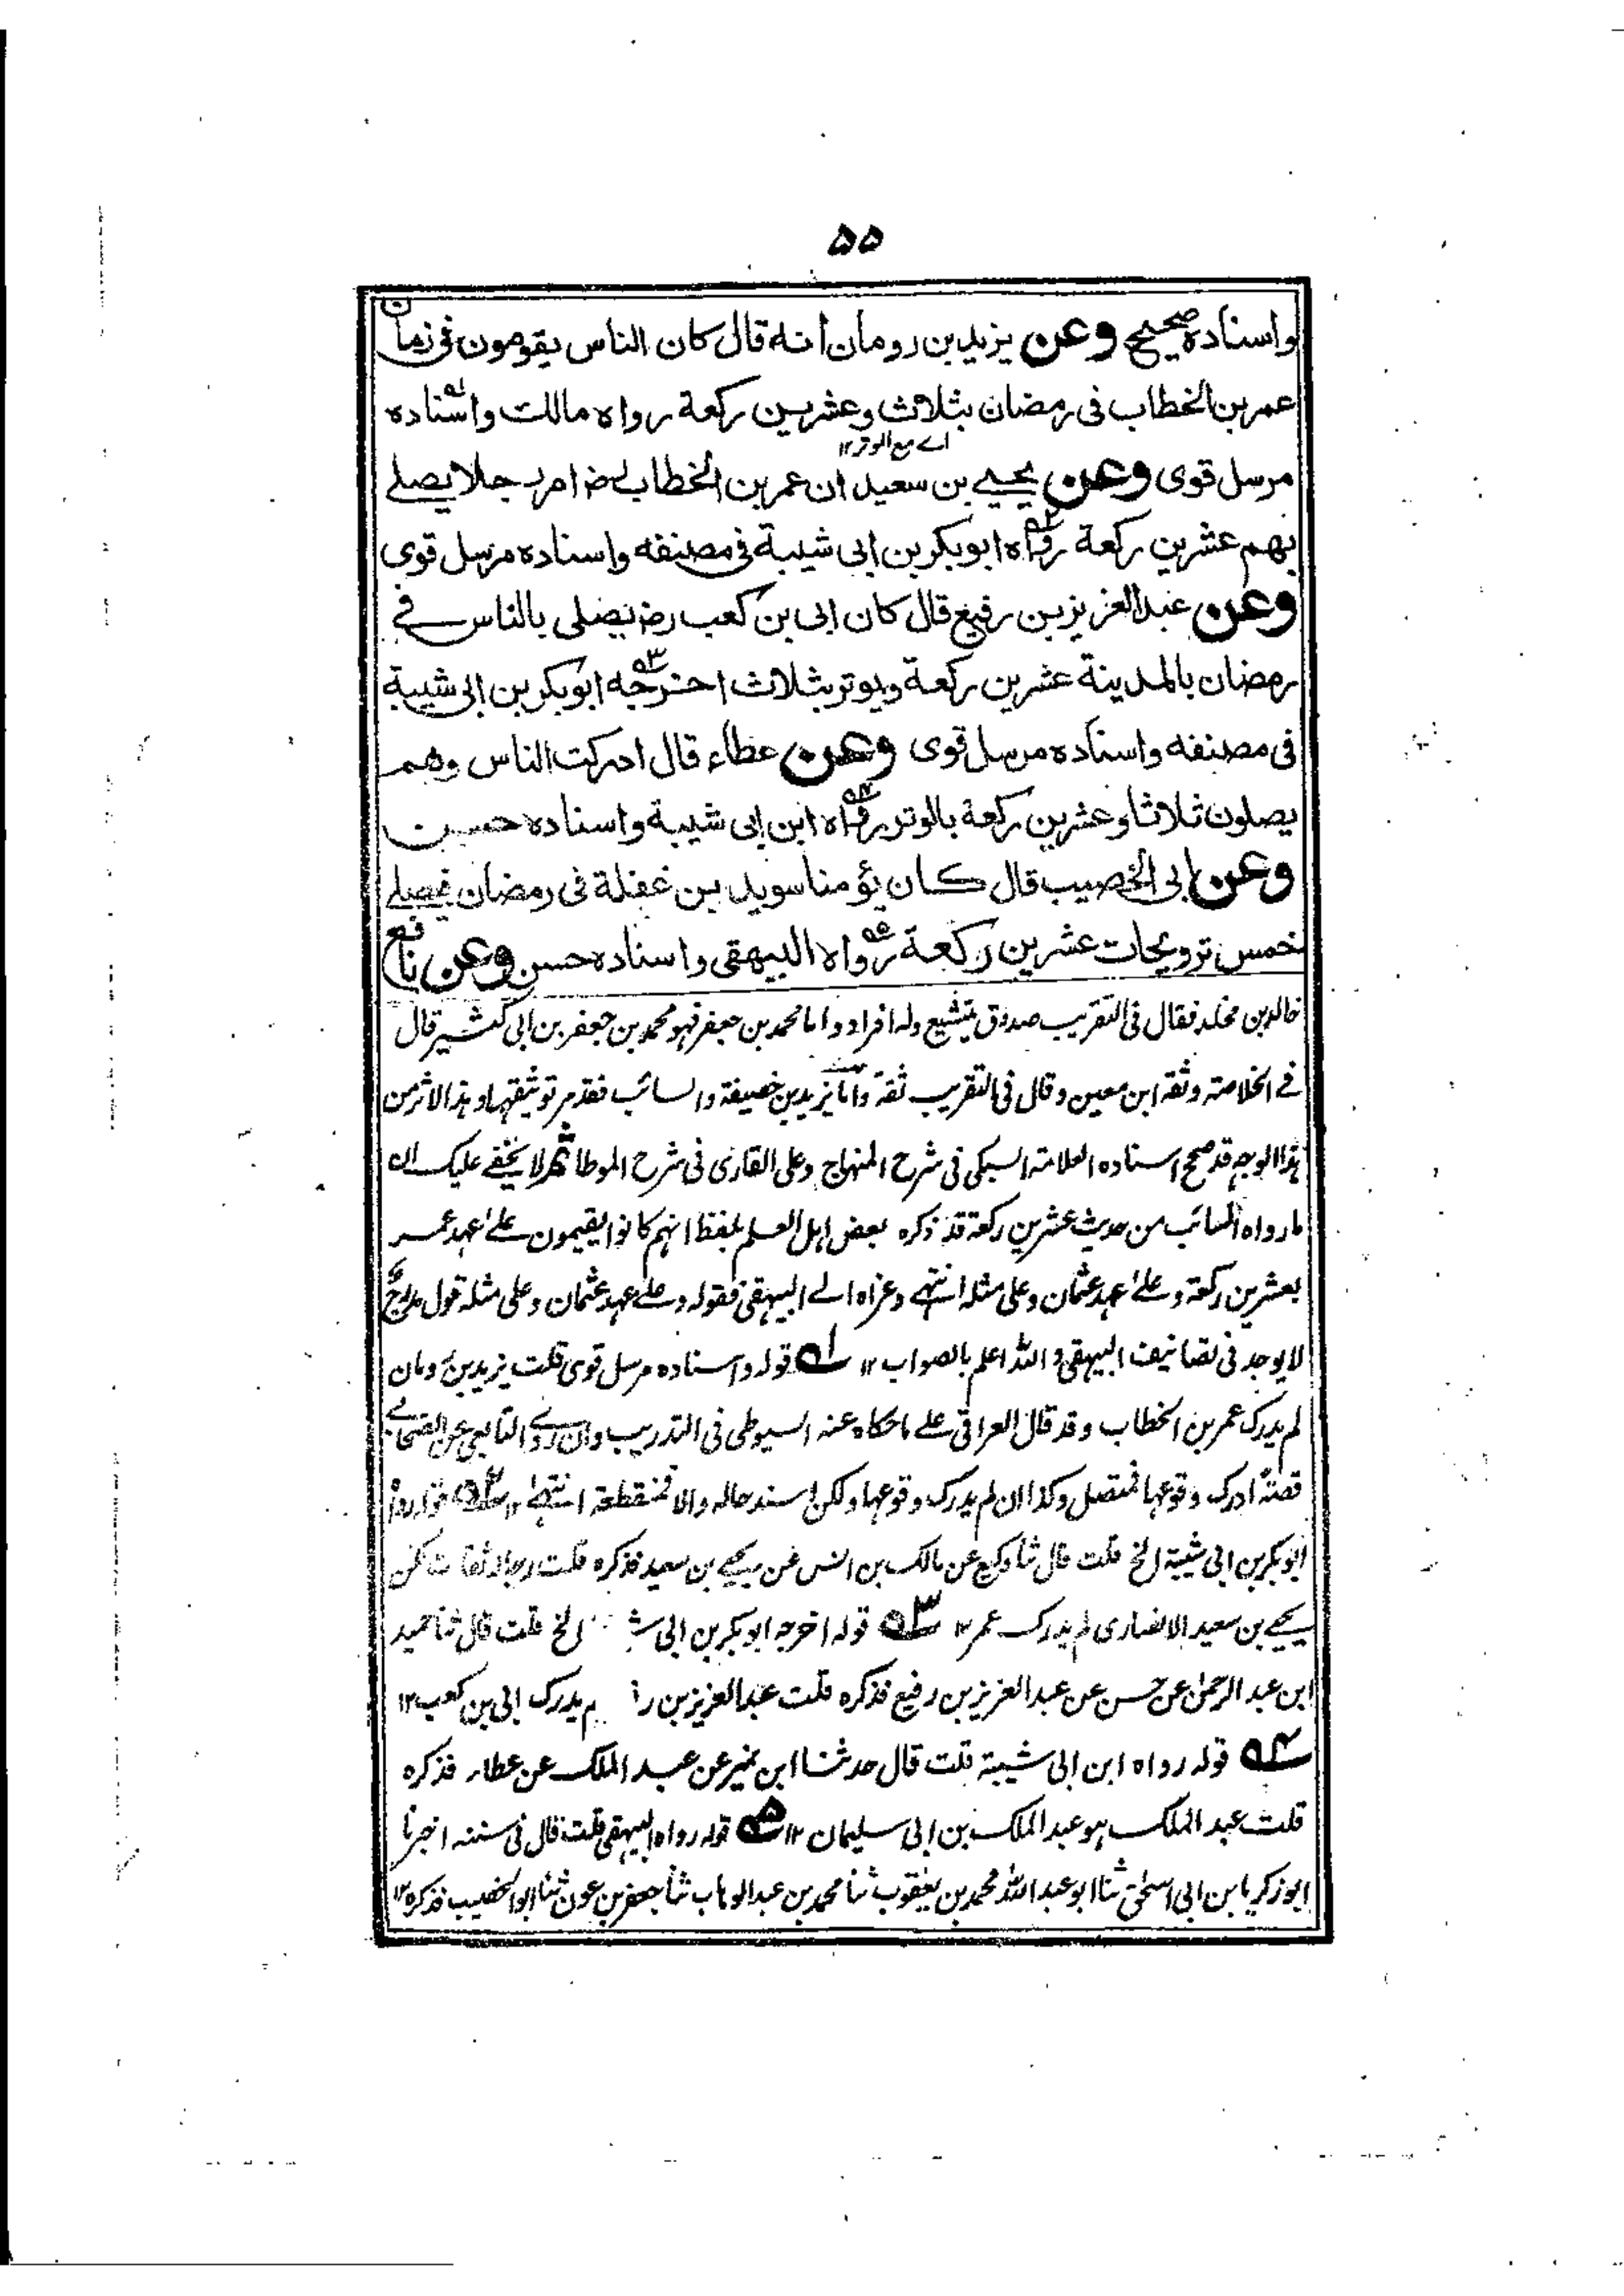 ۵۵
واسناده صحيح وعن يزيد بن رومان انه قال كان الناس يقومون فى زمان
عمر بن الخطاب فى رمضان بثلاث وعشرين ركعة رواه مالك واسناده
اے مع الوتر ١٢
مرسل قوى وعن يحيى بن سعيد ان عمر بن الخطاب رض امر رجلا يصلے
بهم عشرين ركعة رواه ابو بكر بن ابى شيبة فى مصنفه واسناده مرسل قوى
وعن عبد العزيز بن رفيع قال كان ابى بن كعب رض يصلى بالناس فے
رمضان بالمدينة عشرين ركعة ويوتر بثلاث اخرجه ابو بكر بن ابى شيبة
فى مصنفه واسناده مرسل قوى وعن عطاء قال ادركت الناس وهم
يصلون ثلاثا وعشرين ركعة بالوتر رواه ابن ابى شيبة واسناده حسن
وعن ابى الخصيب قال كان يؤمنا سويد بن غفلة فى رمضان فيصلے
خمس ترويحات عشرين ركعة رواه البيهقى واسناده حسن وعن نافع
خالد بن مخلد فقال فى التقريب صدوق يتشيع وله افراد واما محمد بن جعفر فهو محمد بن جعفر بن ابى كثير قال
فے الخلاصة وثقه ابن معين وقال فى التقريب ثقة واما يزيد بن خصيفة والسائب فقد مر توثيقهما وہذا الاثر من
ہذا الوجہ قد صحح اسناده العلامة السبكى فى شرح المنهاج وعلى القارى فى شرح الموطا ثم لا يخفے عليك ان
ما رواه السائب من حديث عشرين ركعة قد ذكره بعض اہل العلم بلفظ انہم كانوا يقيمون علےٰ عہد عمر
بعشرين ركعة وعلےٰ عہد عثمان وعلى مثله انتہے وعزاه الے البيهقى فقوله وعلے عہد عثمان وعلى مثله قول مدرج
لا يوجد فى تصانيف البيهقى والله اعلم بالصواب ١٢ ١ قوله واسناده مرسل قوى قلت يزيد بن رومان
لم يدرك عمر بن الخطاب وقد قال العراقى علے ما حكاه عنه السيوطى فى التدريب وان روى التابعى عن الصحابے
قصة ادرك وقوعها فمتصل وكذا ان لم يدرك وقوعها ولكن اسند حاله والا فمنقطعة انتہے ١٢ ٢ قوله رواه
ابو بكر بن ابى شيبة الخ قلت قال ثنا وكيع عن مالك بن انس عن يحيے بن سعيد فذكره قلت رجاله ثقات لكن
يحيے بن سعيد الانصارى لم يدرك عمر ١٢ ٣ قوله اخرجه ابو بكر بن ابى الخ قلت قال ثنا حميد
ابن عبد الرحمن عن حسن عن عبد العزيز بن رفيع فذكره قلت عبد العزيز بن يدرك ابى بن كعب ١٢
٤ قوله رواه ابن ابى شيبة قلت قال حدثنا ابن نمير عن عبد الملك عن عطاء فذكره
قلت عبد الملك ہو عبد الملك بن ابى سليمان ١٢ ٥ قوله رواه البيهقى قلت قال فى سننه اخبرنا
ابو زكريا بن ابى اسحٰق ثنا ابو عبد الله محمد بن يعقوب ثنا محمد بن عبد الوہاب ثنا جعفر بن عون ثنا ابو الخصيب فذكره ١٢